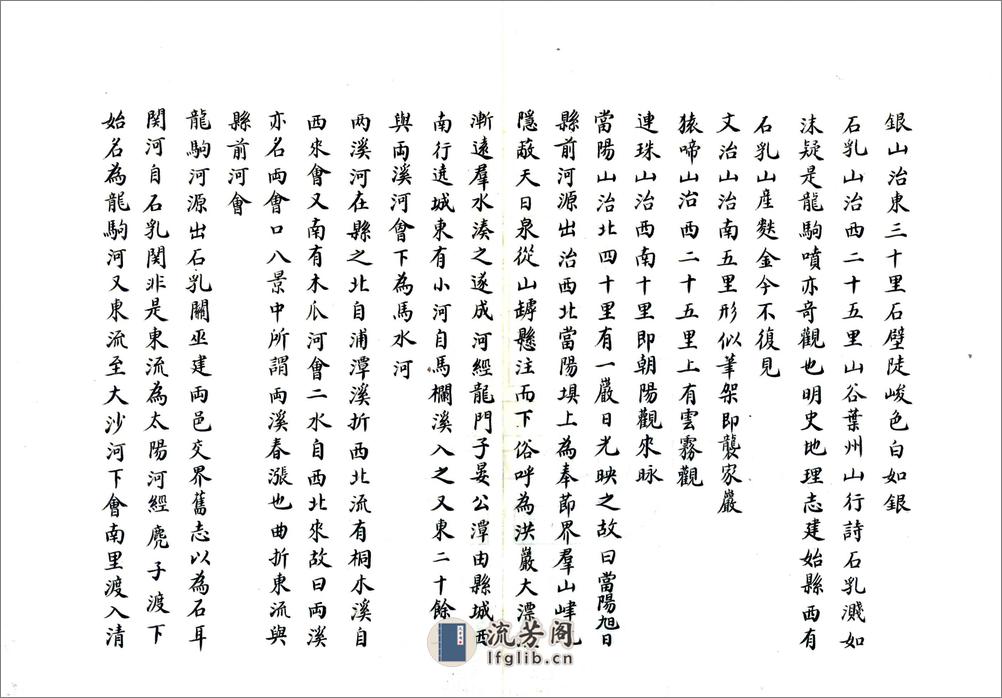 銀山治東三十里石壁陡峻色白如銀
石乳山治西二十五里山谷葉州山行詩石乳濺如
沫疑是龍駒噴亦竒觀也明史地理志建始縣西有
石乳山産麩金今不復見
文治山治南五里形似筆架即龔家巖
猿啼山治西二十五里上有雲霧觀
連珠山治西南十里即朝陽觀來脉
當陽山治北四十里有一巖日光映之故曰當陽旭日
縣前河源出治西北當陽垻上為奉節界羣山嵂
隠蔽天日泉從山罅懸注而下俗呼為洪巖大漂
漸遠羣水湊之遂成河經龍門子晏公潭由縣城西
南行遶城東有小河自馬欄溪入之又東二十餘
與両溪河會下為馬水河
両溪河在縣之北自浦潭溪折西北流有桐木溪自
西來會又南有木瓜河會二水自西北來故曰両溪
亦名両會口八景中所謂両溪春漲也曲折東流與
縣前河會
龍駒河源出石乳關巫建両邑交界舊志以為石耳
関河自石乳関非是東流為太陽河經麂子渡下
始名為龍駒河又東流至大沙河下會南里渡入清
流芳阁
lfglib.cn